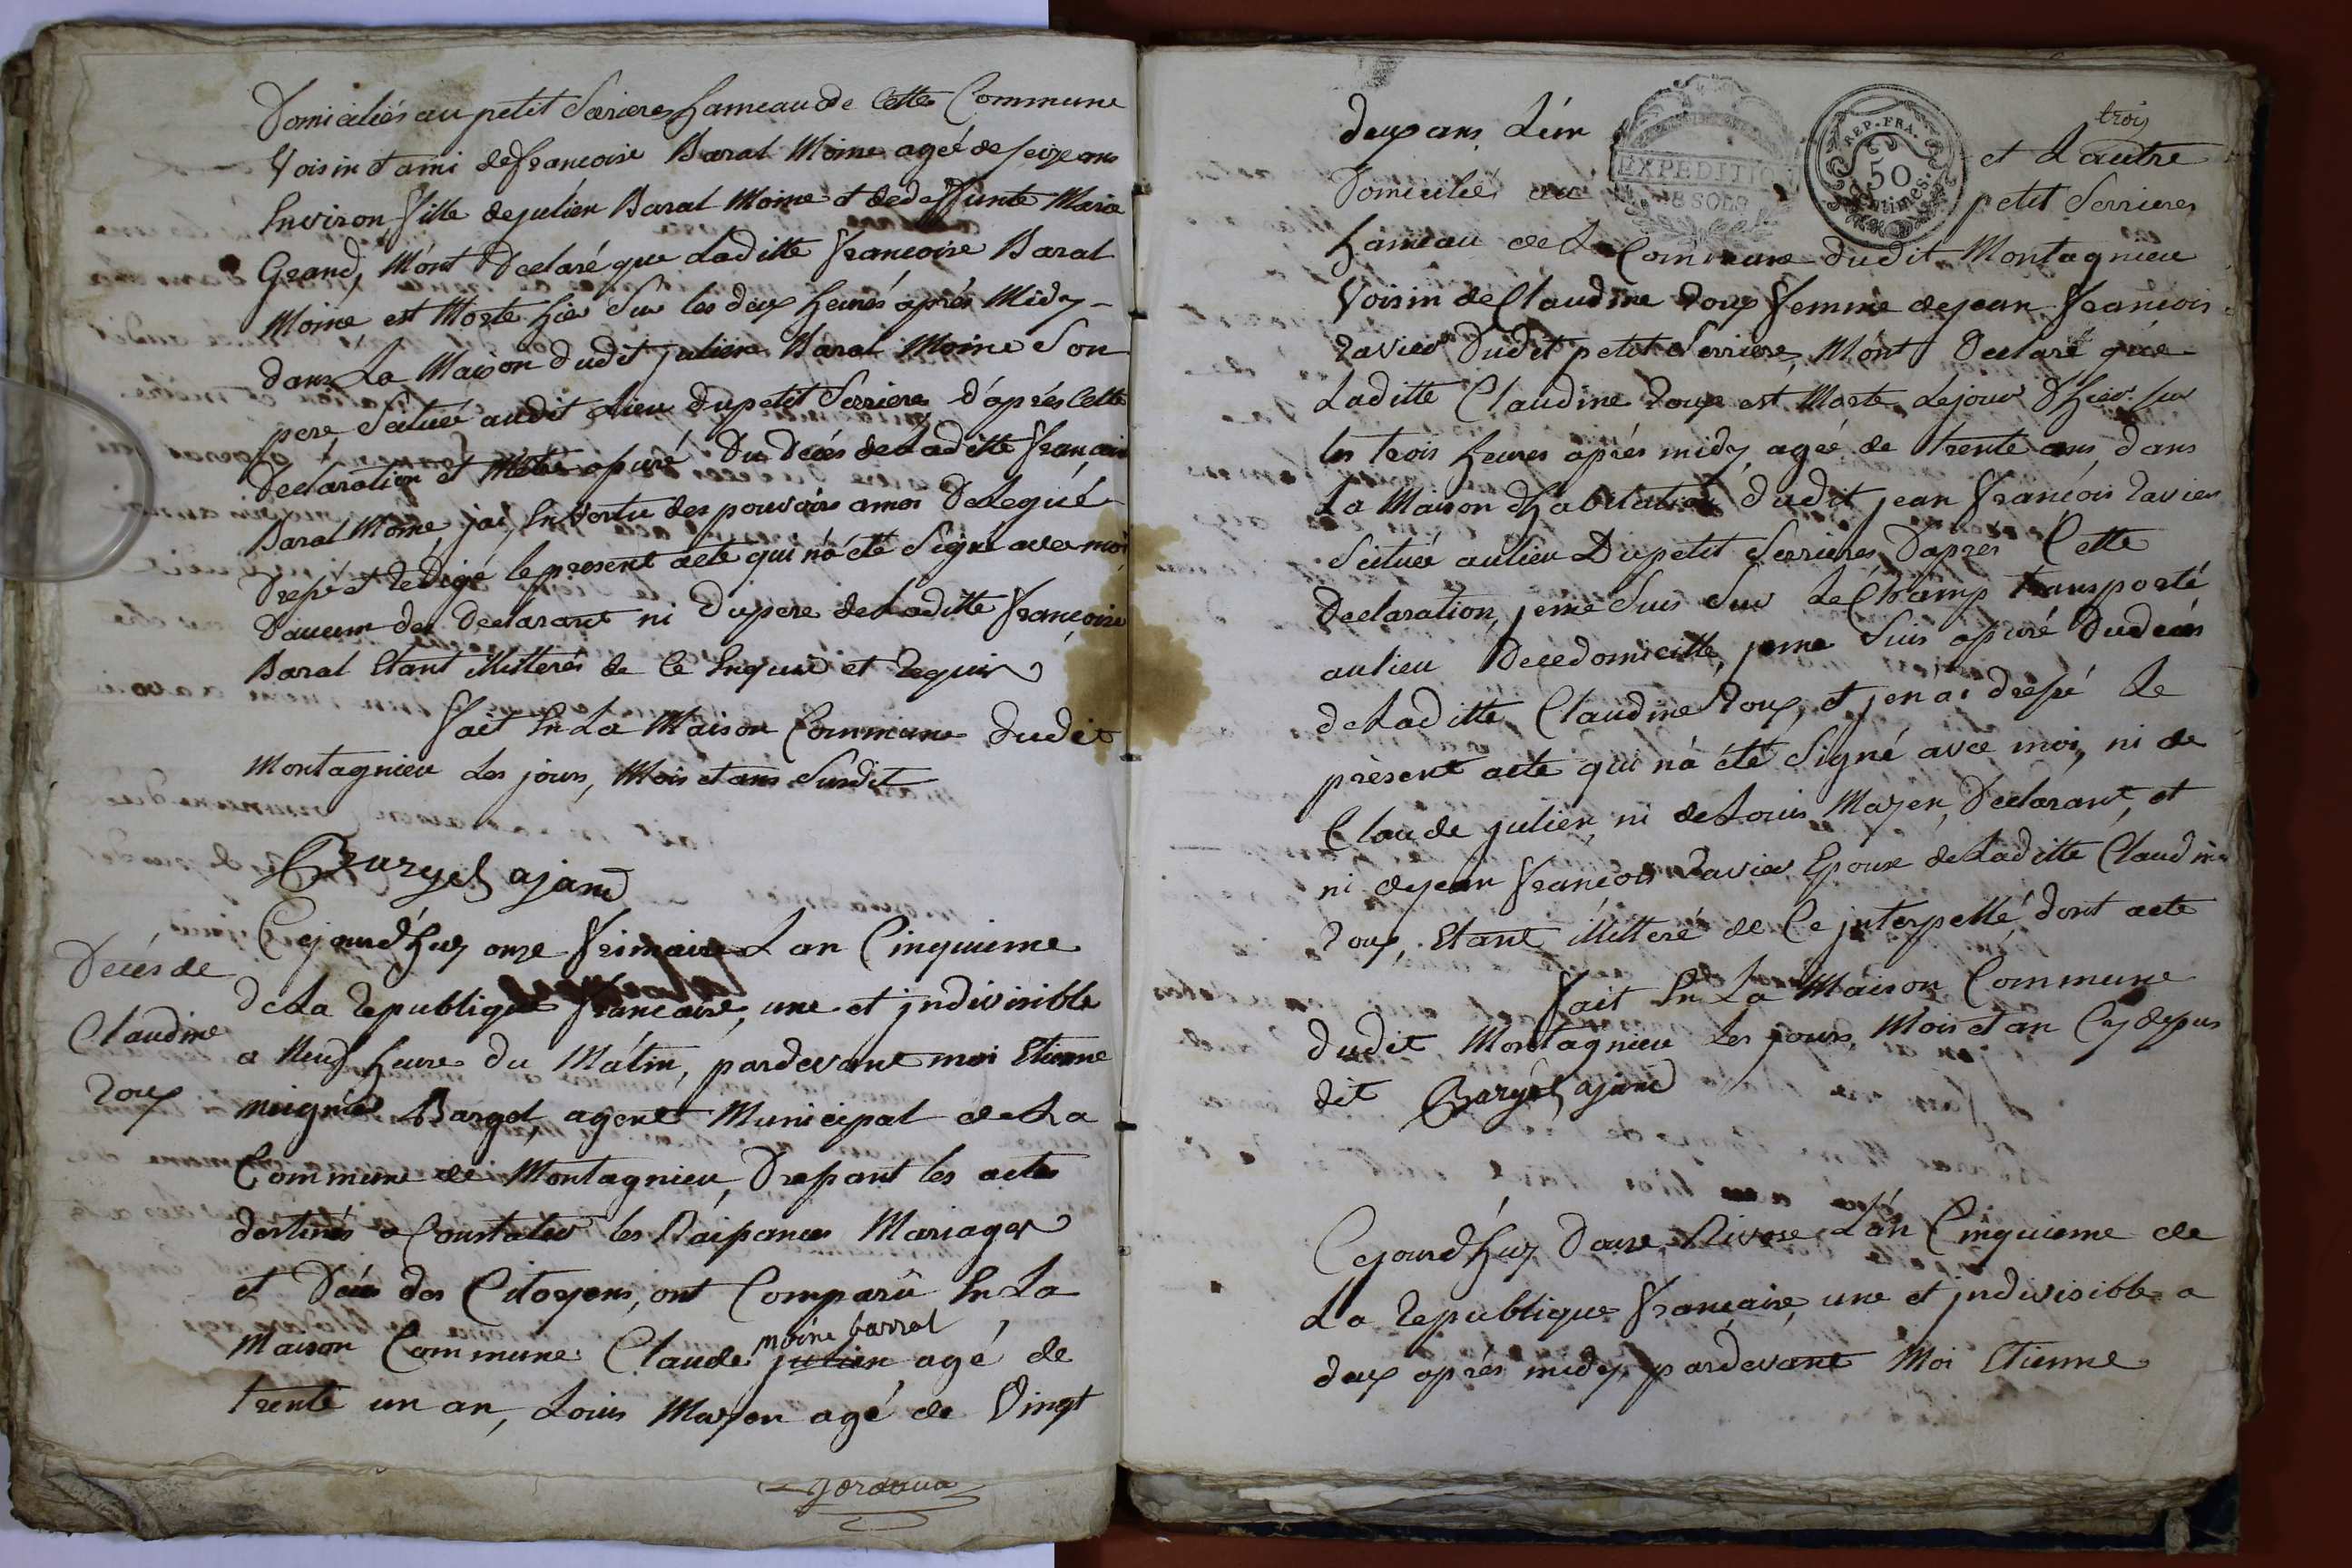 Domiciliés au petit Serieres hameau de Cette Commune
Voisin et ami de françoise Baral Moine ageé de seize ans
Environ, fille de julien Baral Moine et de deffunte Marie
Grand, M'ont Declaré que Laditte françoise Baral
Moine est Morte hier Sur les deux heures aprés Midy
dans La Maison dudit julien Baral Moine Son
pere, Scituée audit Lieu du petit Serriere, d'aprés Cette
Declaration et Mètre apuré Du Décés de Laditte françoise
Baral Moine, jai, En Vertu des pouvoirs a moi Delegué
Dressé et Redigé le present acte qui n'a été Signé avec moi
D'aucun des Declarant ni Du pere de Laditte françoise
Baral Etant illitterés de Ce Enquis et Requis
fait En La Maison Commune dudit
Montagnieu Les jours, Mois et ans Susdit
Bargel agend
Décés de
Claudine
Roux
Cejourd'huy onze frimaire L'an Cinquieme
De La Republique francaise, une et jndivisible
a Neuf heure du Matin, pardevant moi Etienne
muignier Bargel, agent Municipal de La
Commune de Montagnieu, Dressant les actes
destinés a Constater les Naissances Mariages
et Décés des Citoyens, ont Comparû En La
moine barral
Maison Commune Claude julien agé de
trente un an, Louis Mayen agé de Vingt
jordana
trois
deux ans L'un EXPEDITION REP. FRA. et L'autre
Domicilié au 8 SOLS 50 Centimes. petit Serrieres
hameau de La Commune dudit Montagnieu
Voisin de Claudine Roux femme de jean François
Ravier Dudit petit Serriere, M'ont Declaré que
Laditte Claudine Roux est Morte Le jour D'hier sur
les trois heures aprés midy, ageé de trente ans, dans
La Maison d'habitation dudit jean François Ravier
Scituée au lieu Du petit Serrieres D'apres Cette
Declaration, je me Suis Sur Le Champ transporté
au lieu De ce domicille, je me Suis apuré du decés
de Laditte Claudine Roux, et j'en ai dressé Le
présent acte qui n'a été Signé avec moi, ni de
Claude julien, ni de Louis Mayen, Declarant, et
ni de jean François Ravier Epoux de Laditte Claudine
Roux, Etant illitteré de Ce jnterpellé, dont acte
fait En La Maison Commune
dudit Montagnieu Les jours, Mois et an Cy depus
dit Bargel agend
Cejourd'huy Douze Nivose L'an Cinquieme de
La Republique francaise, une et jndivisible a
deux aprés midy, pardevant Moi Etienne